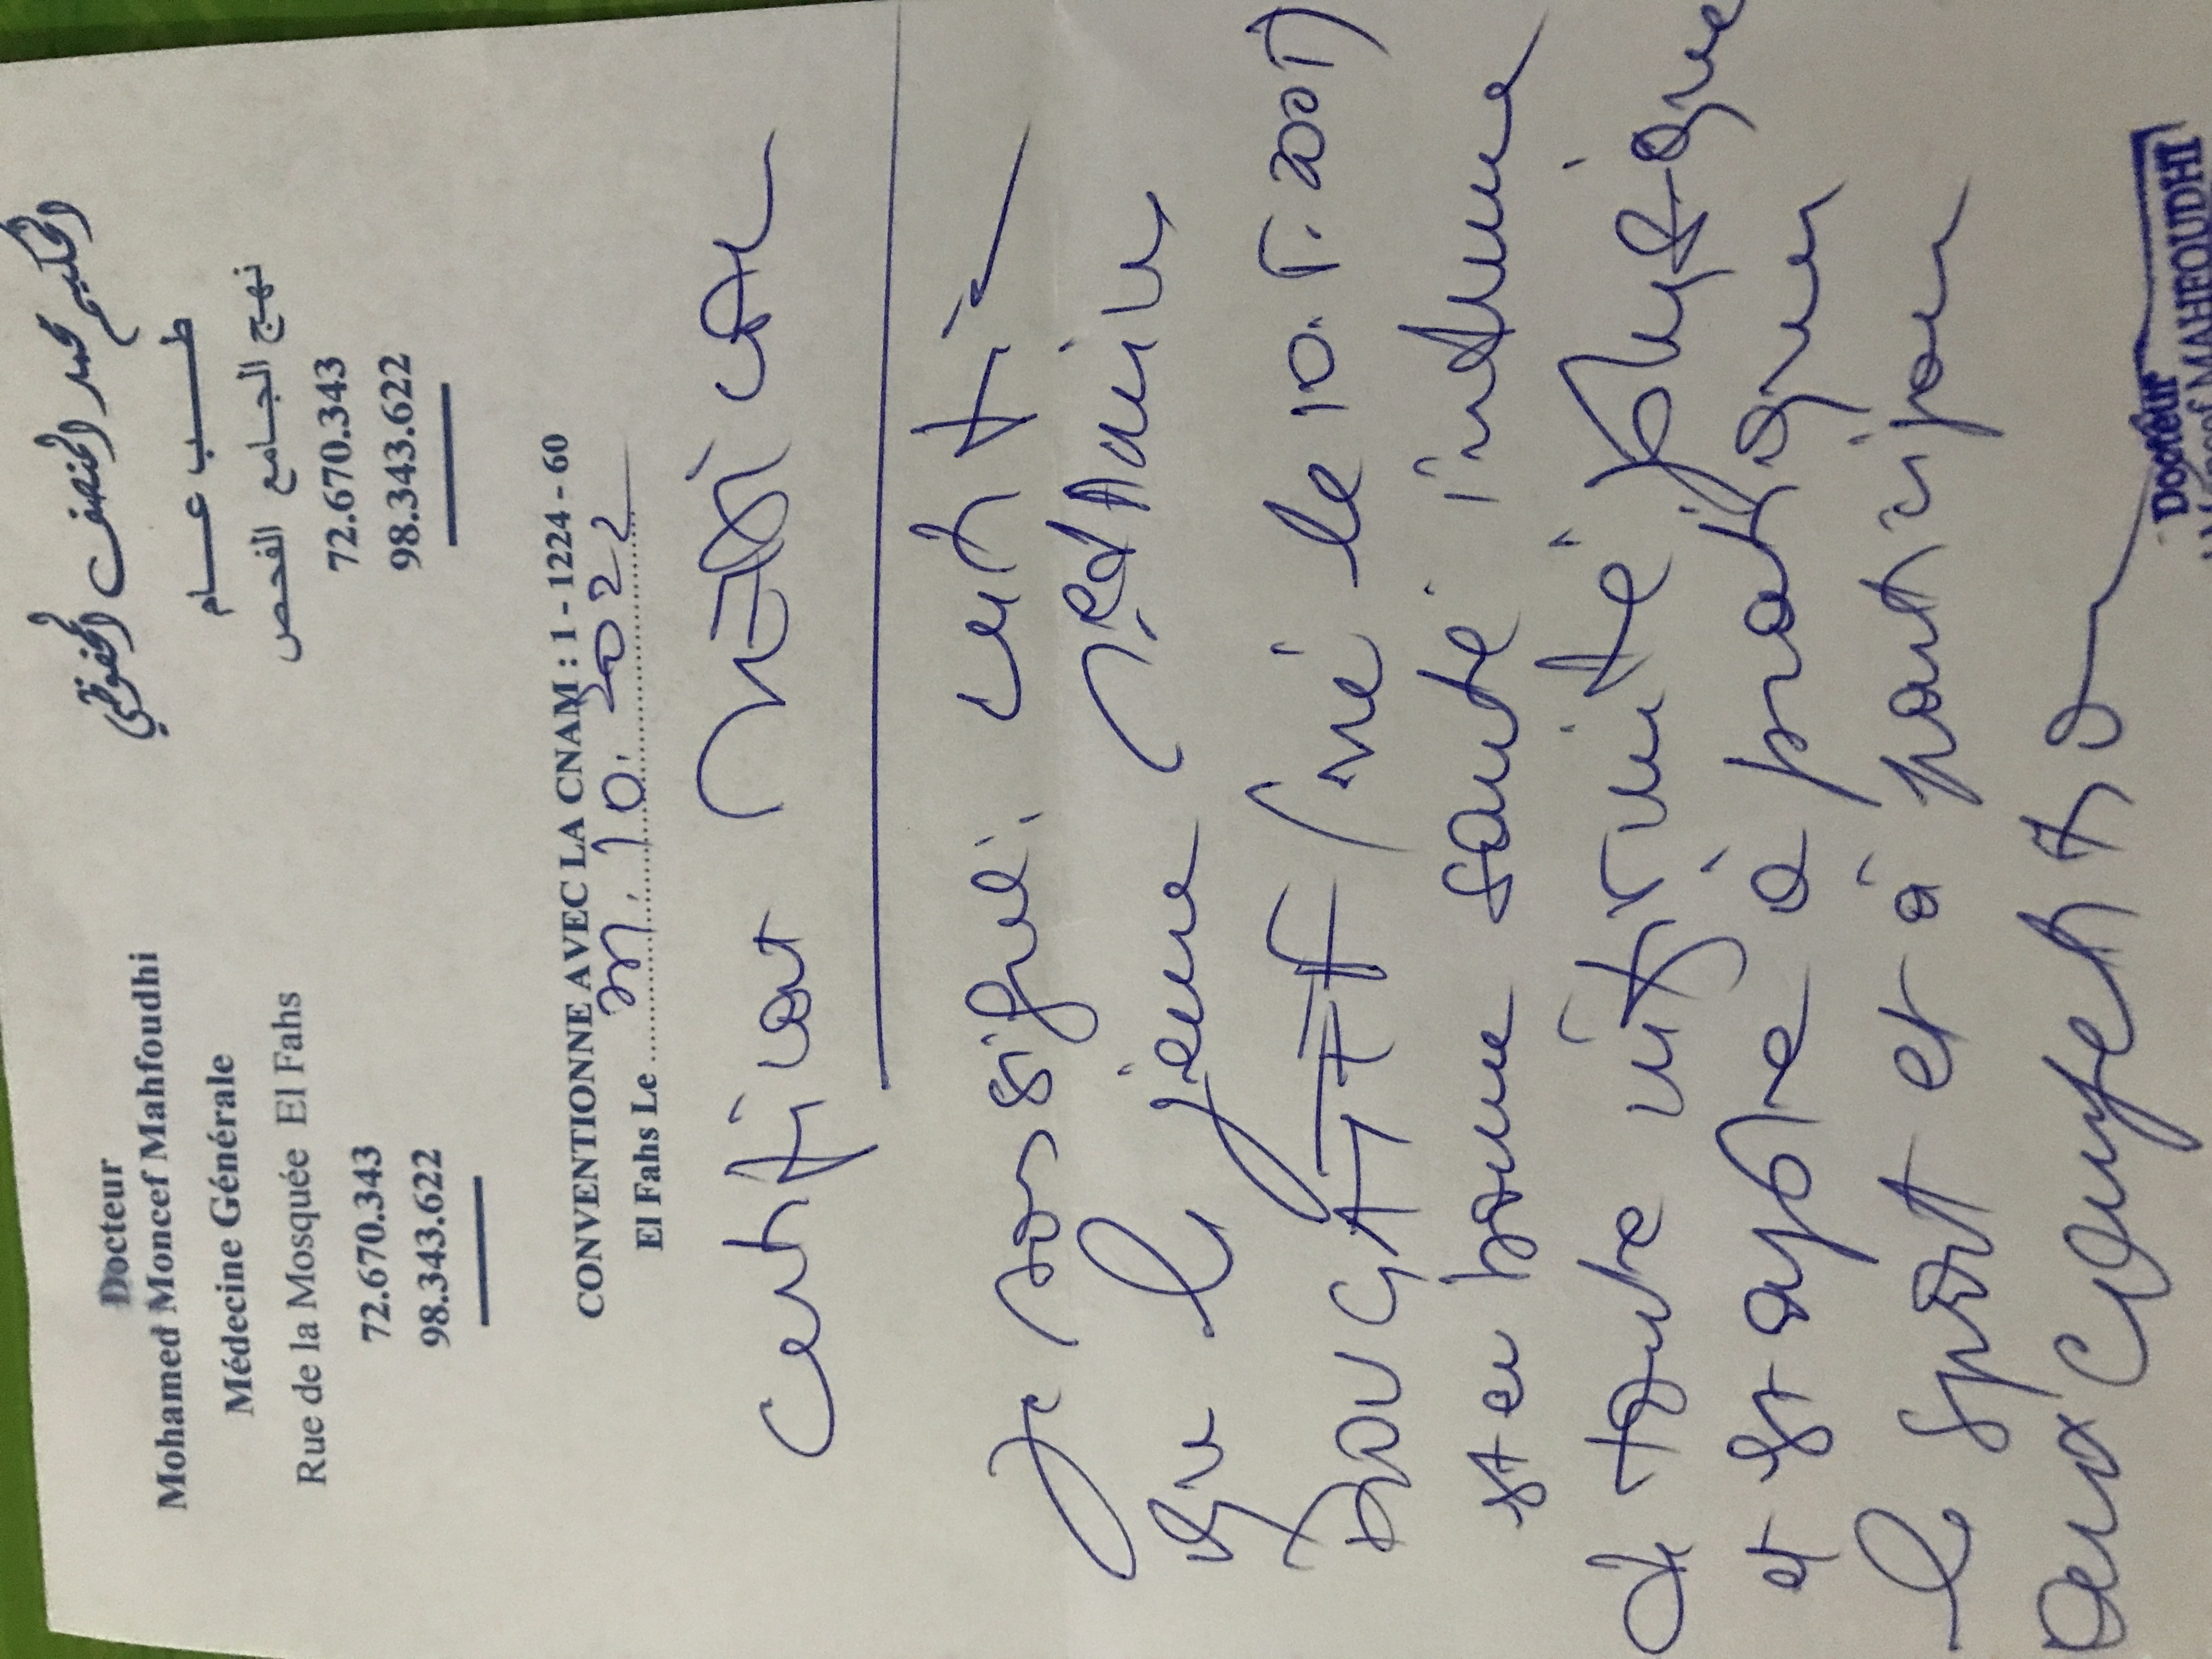 Docteur
Mohamed Moncef Mahfoudhi
Médecine Générale
Rue de la Mosquée El Fahs
72.670.343
98.343.622
الحكيم محمد المنصف المحفوظي
طـــب عـــام
نهج الجامع الفحص
72.670.343
98.343.622
CONVENTIONNE AVEC LA CNAM : 1 - 1224 - 60
El Fahs Le 10. 2022
Certificat Médical
Je soussigné certifie
que le jeune Med Amine
(né le 10.5.2001)
est en bonne santé indemne
de toute infirmité physique
et est apte à pratiquer
le sport et à participer
aux compétitions
Docteur
Moncef MAHFOUDHI